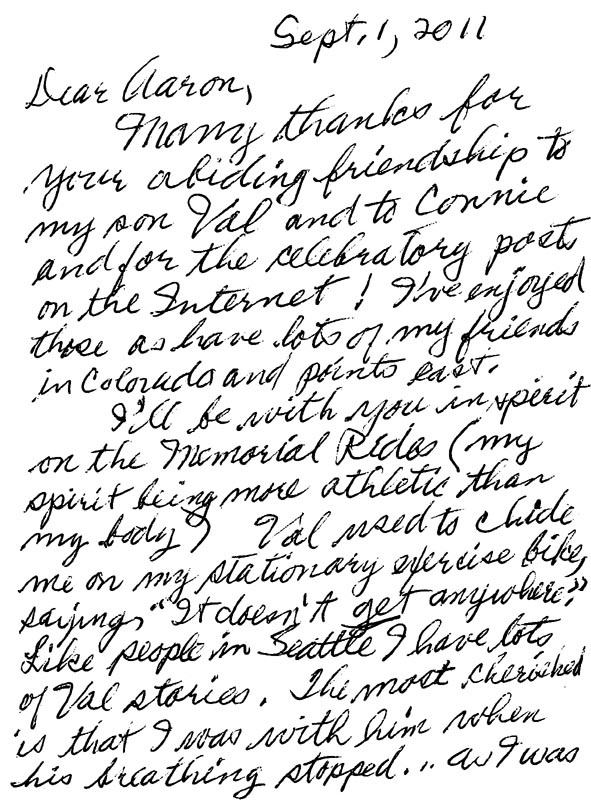 Sept. 1, 2011
Dear Aaron,
Many thanks for
your abiding friendship to
my son Val and to Connie
and for the celebratory posts
on the Internet! I've enjoyed
those as have lots of my friends
in Colorado and points east.
I'll be with you in spirit
on the Memorial Rides (my
spirit being more athletic than
my body) Val used to chide
me on my stationary exercise bike,
saying, "It doesn't get anywhere."
Like people in Seattle I have lots
of Val stories. The most cherished
is that I was with him when
his breathing stopped... as I was